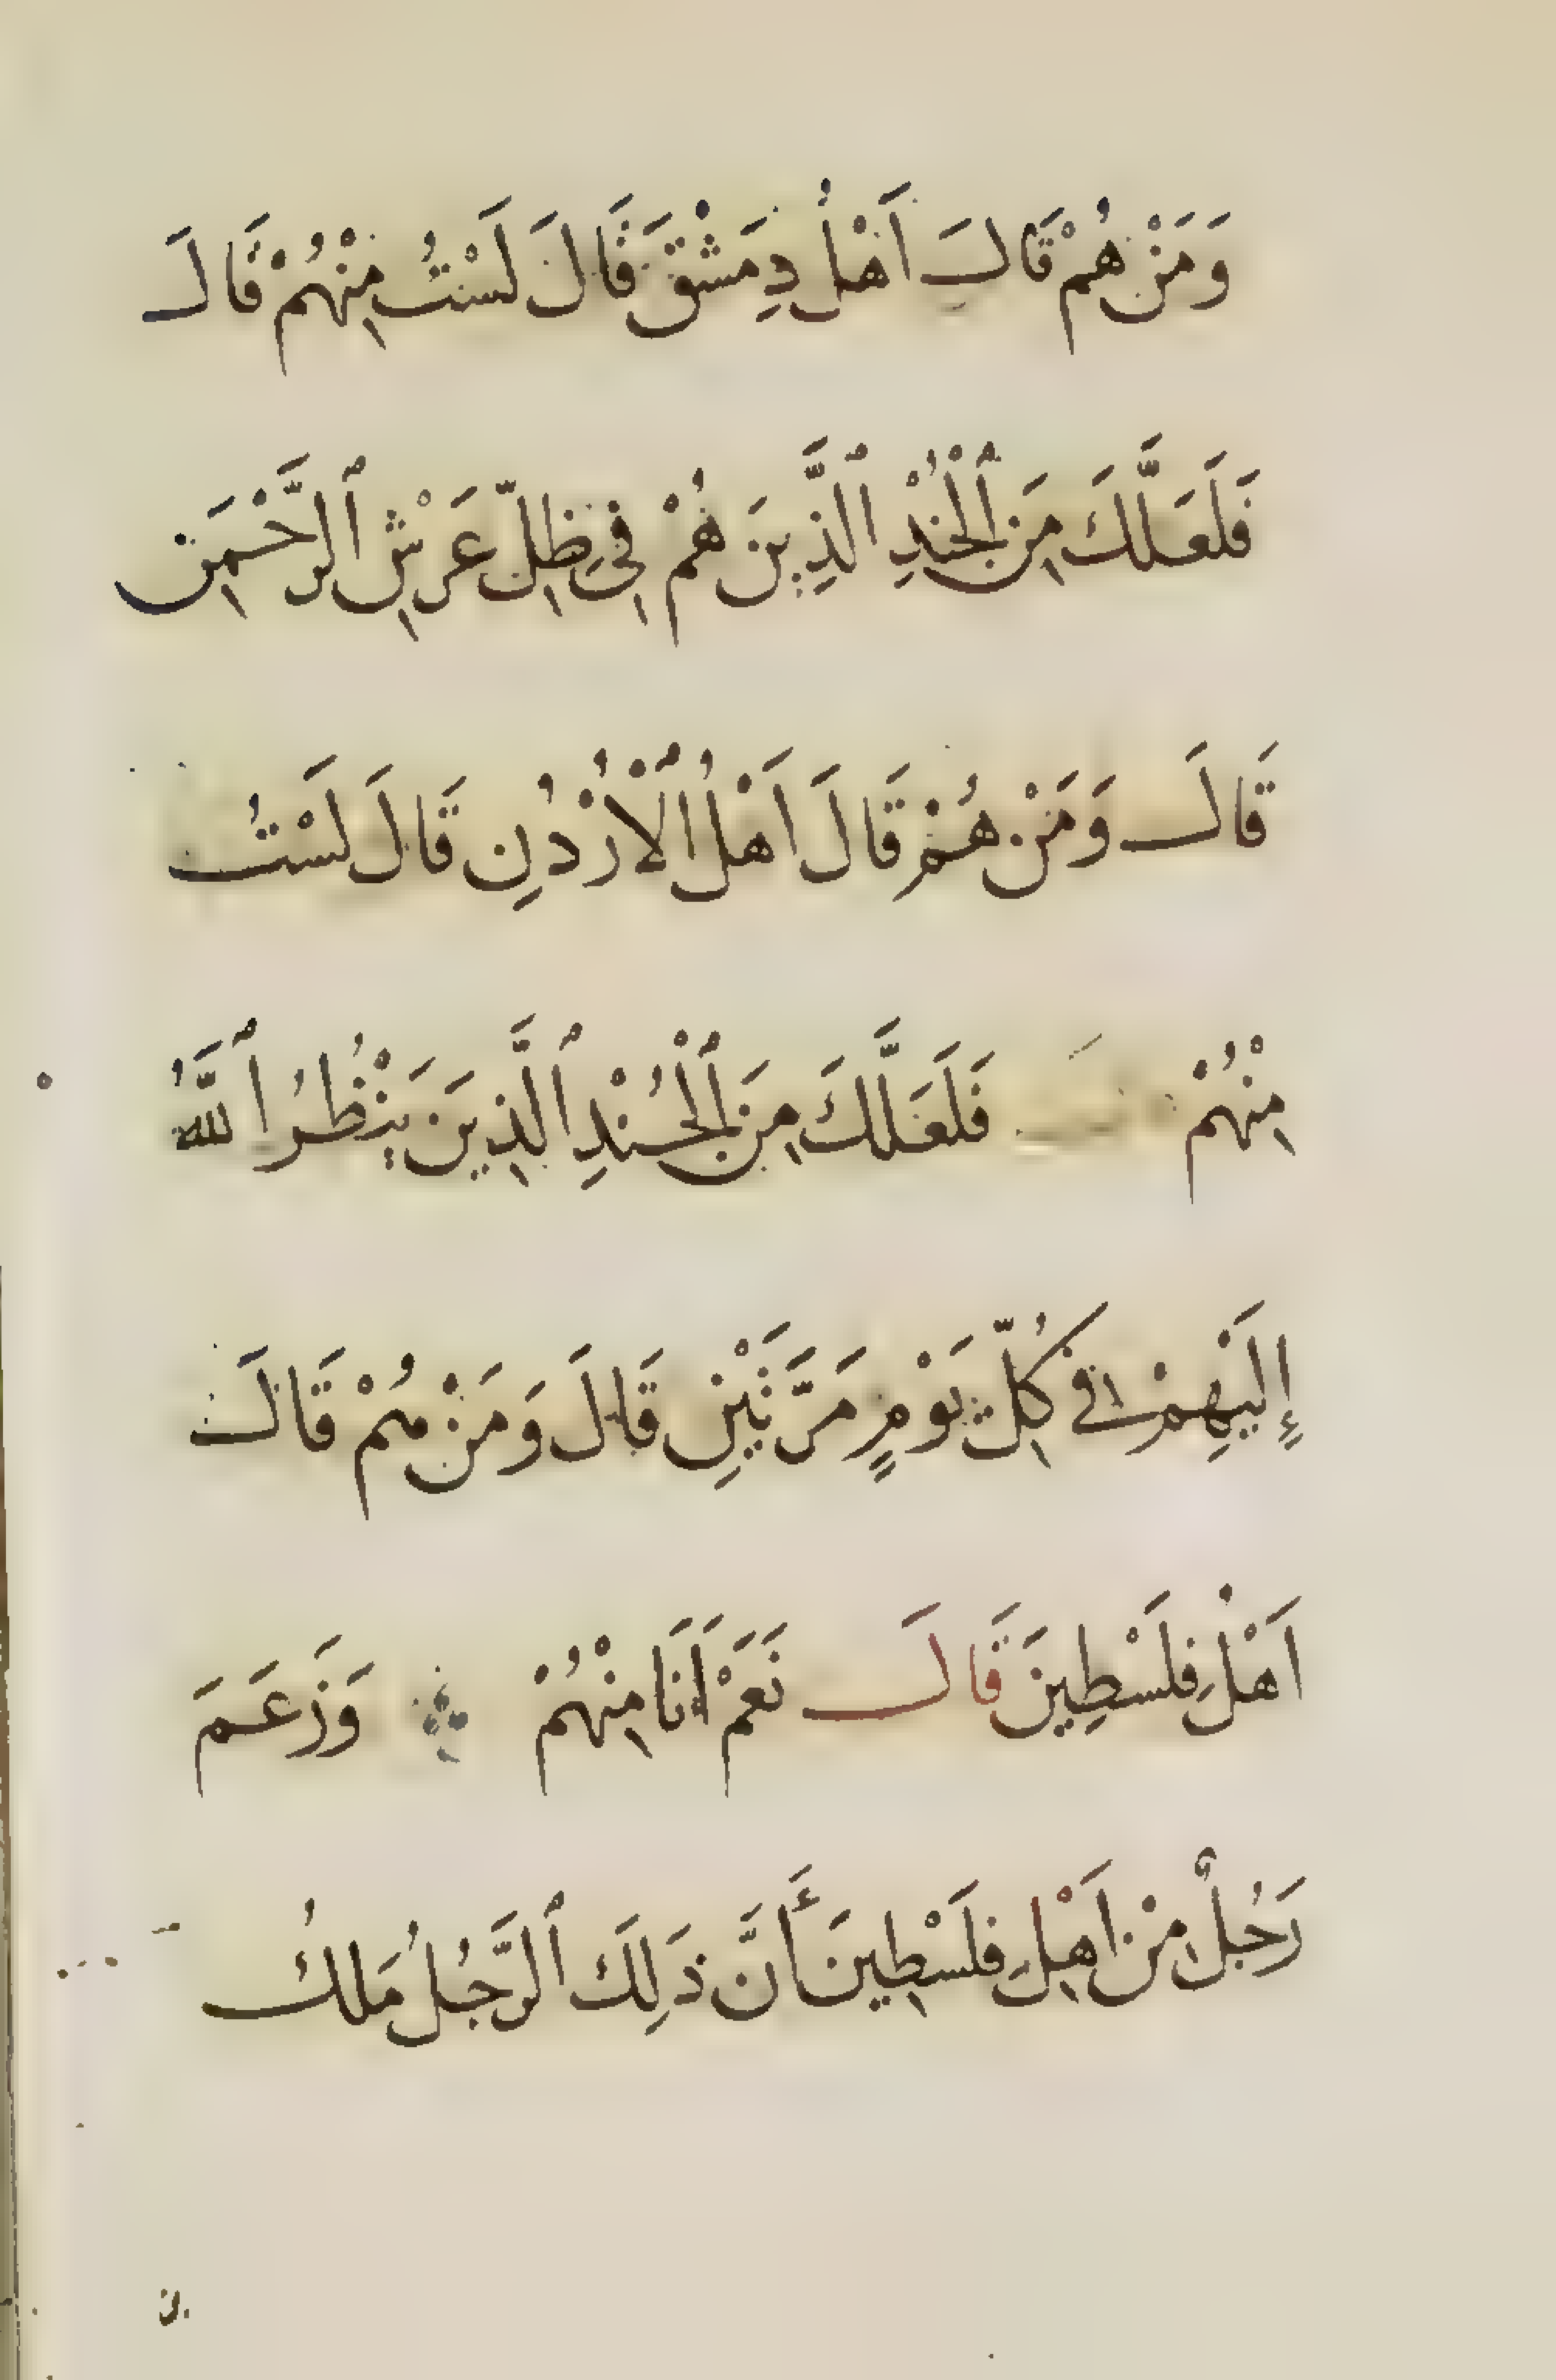 وَمَنْ هُمْ قَالَ اَهْلُ دِمَشْقَ قَالَ لَسْتُ مِنْهُمْ قَالَ
فَلَعَلَّكَ مِنَ ٱلْجُنْدِ ٱلَّذِينَ هُمْ فِي ظِلِّ عَرْشِ ٱلرَّحْمَنِ
قَالَ وَمَنْ هُمْ قَالَ اَهْلُ ٱلْأُرْدُنِ قَالَ لَسْتُ
مِنْهُمْ فَلَعَلَّكَ مِنَ ٱلْجُنْدِ ٱلَّذِينَ يَنْظُرُ ٱللَّهُ
إِلَيْهِمْ فِي كُلِّ يَوْمٍ مَرَّتَيْنِ قَالَ وَمَنْ هُمْ قَالَ
اَهْلُ فِلَسْطِينَ قَالَ نَعَمْ أَنَا مِنْهُمْ وَزَعَمَ
رَجُلٌ مِنْ اَهْلِ فِلَسْطِينَ أَنَّ ذَلِكَ ٱلرَّجُلُ مَلَكُ